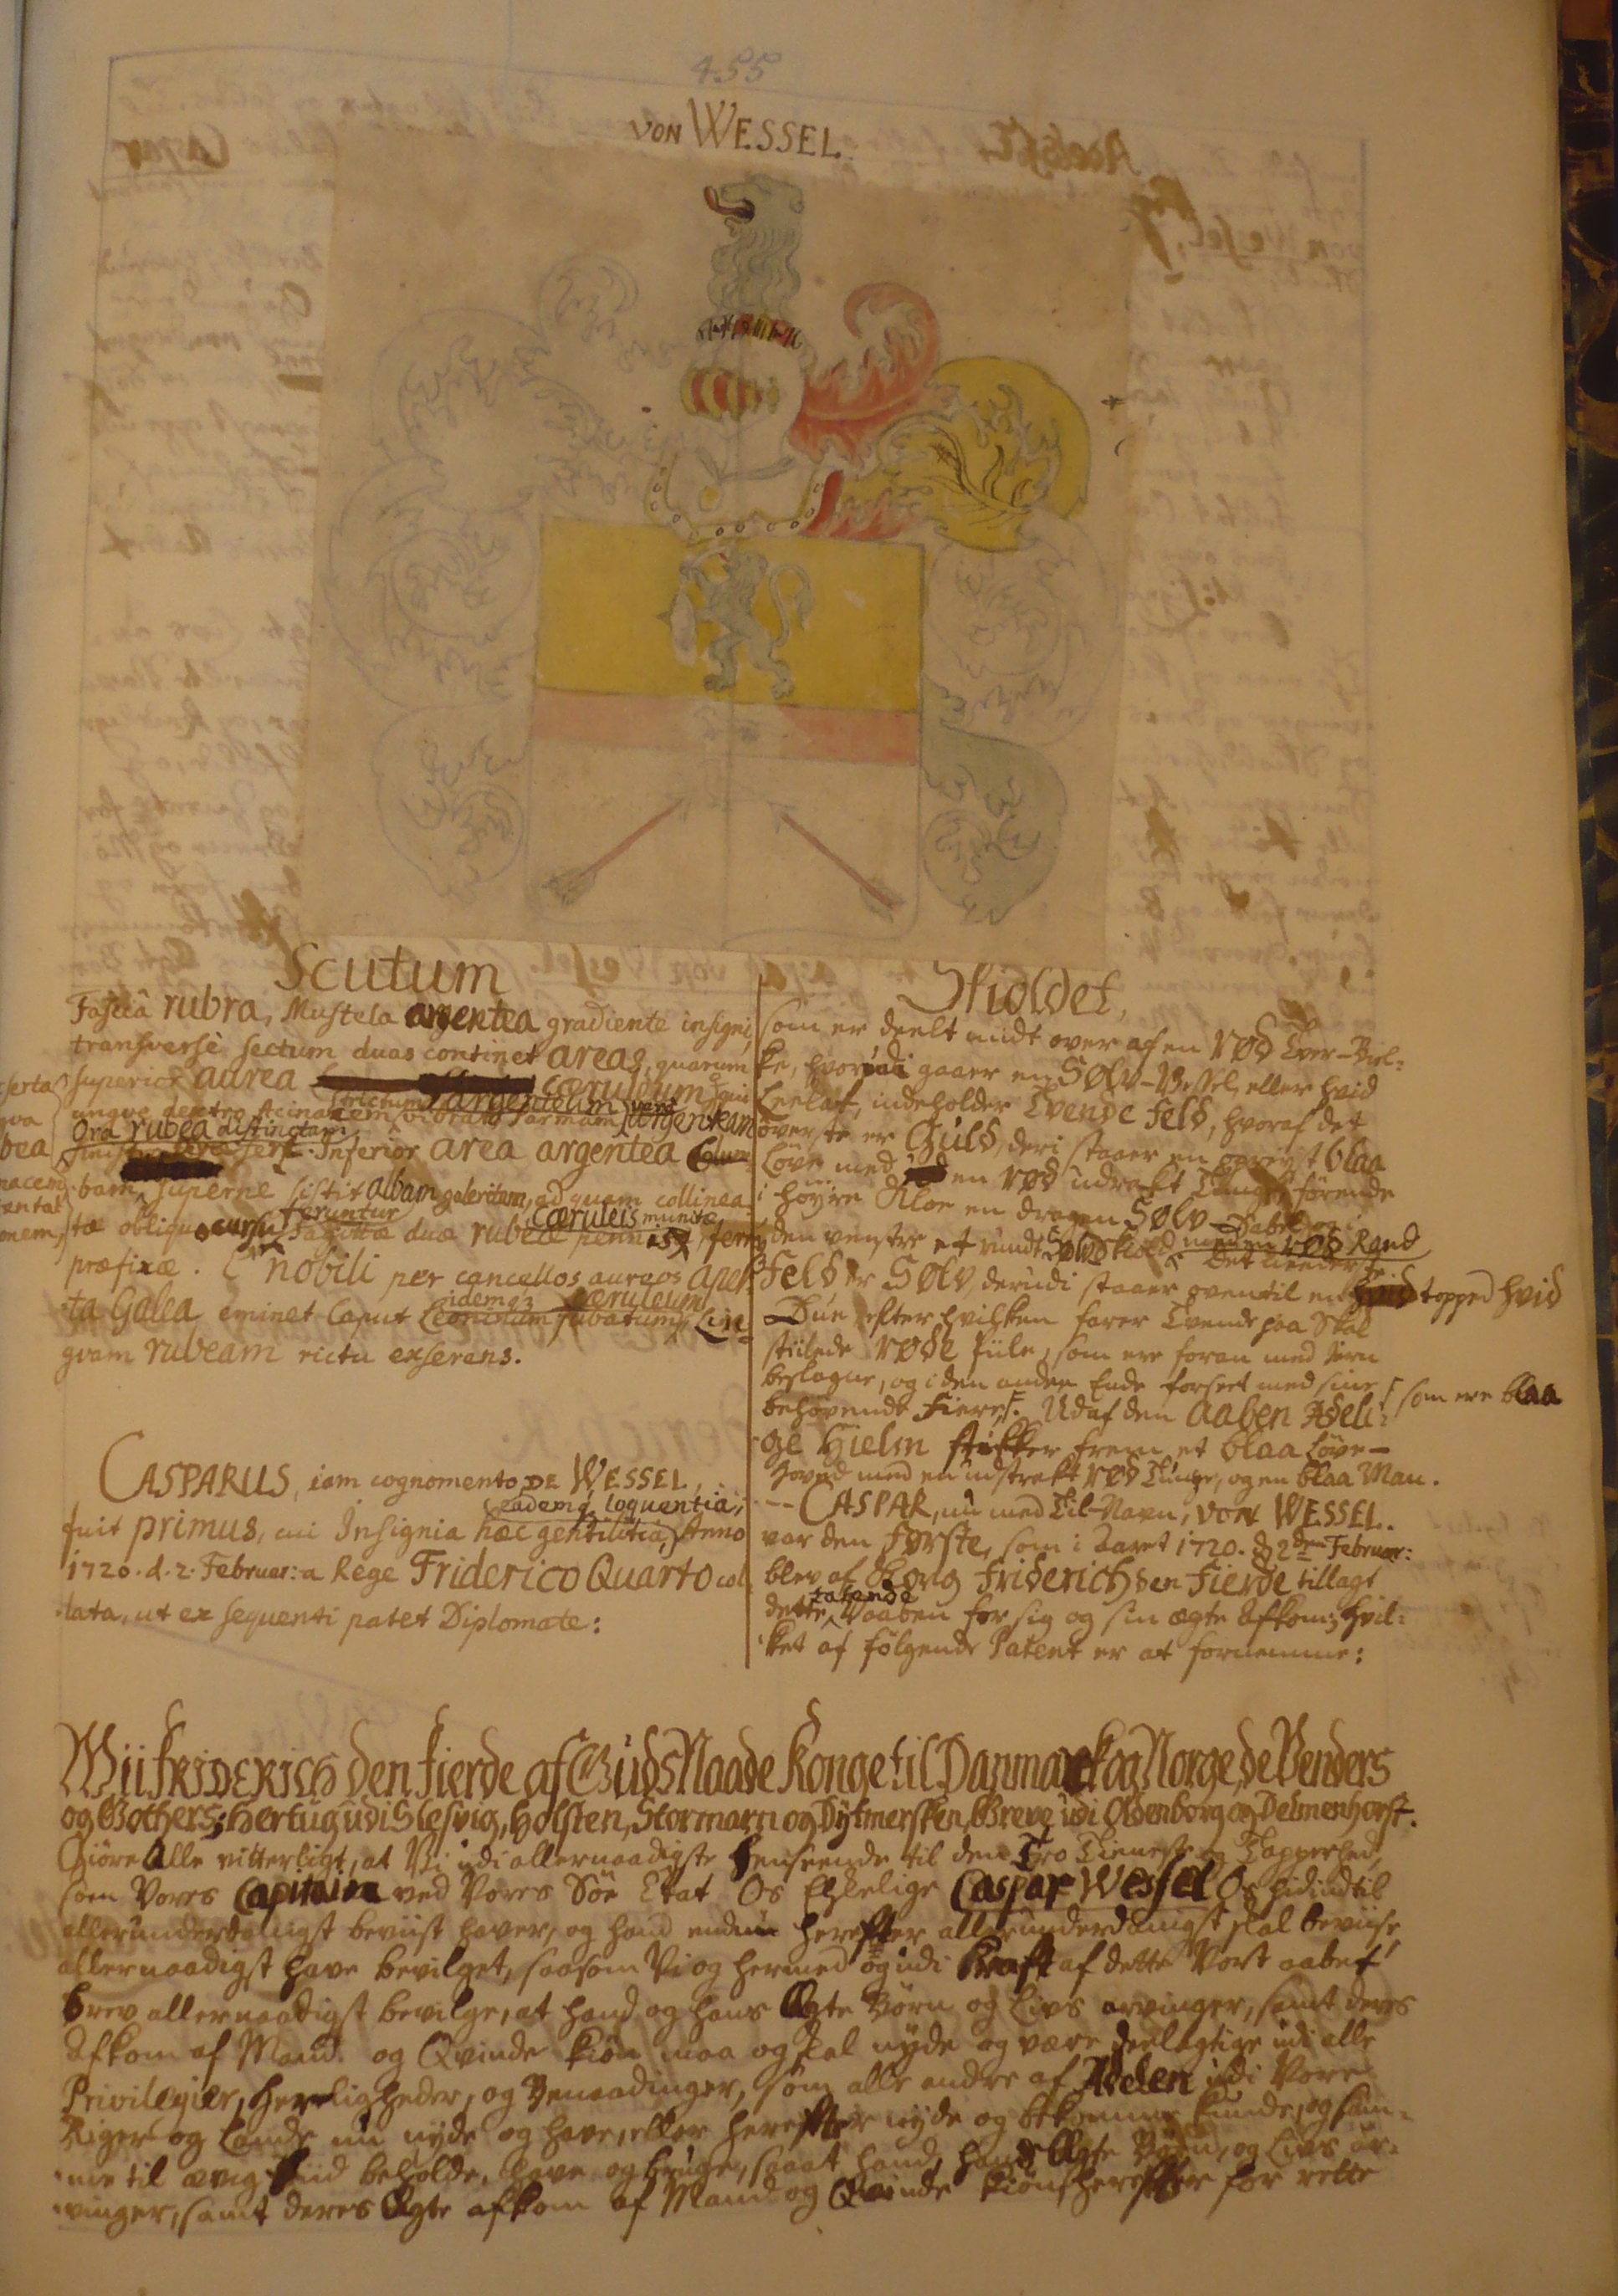 455
VON WESSEL.
Scutum
Fasciâ rubra, Mustela argentea gradiente insigni,
transversè sectum duas continet areas, quarum
superior aurea cæruleum
ungve dextro Acinacem strictum argenteum vibrans Parmam argenteam
Ora rubea distinctam
Inferior area argentea Colum-
bam superne sistit albam galeritam, ad quam collinea-
tæ obliquo cursu feruntur Sagittæ duæ rubeæ pennis cæruleis munitæ, ferro
præfixæ. E nobili per cancellos aureos aper-
ta Galea eminet Caput Leoninum idemq; cæruleum jubatum, Lin-
gvam rubeam rictu exserens.
CASPARUS, iam cognomento DE WESSEL,
fuit primus, cui Insignia hæc gentilitia, eademq; loquentia, Anno
1720. d. 2. Februar: a Rege Friderico Quarto col-
lata, ut ex sequenti patet Diplomate:
Skioldet,
som er deelt midt over af en RØD Tver-Biel-
ke, hvorudi gaaer en SØLV-Vessel, eller hvid
Leekat, indeholder Tvende Feld, hvoraf det
överste er Guld, deri staaer en opreyst blaa
Löve med en RØD udrakt Tunge, førende
i höyre Kloe en dragen SØLV-Sabel og i
den venstre et rundt Sølv-Skiold med en RØD Rand. Det Neederste
Feld er SØLV, derudi staaer oventil en topped hvid
Due efter hvilken farer Tvende paa Skaa
stillede RØDE Piile, som ere foran med Jern
beslagne, og i den anden Ende forseet med sine
behövende Fiere, som ere blaa. Udaf den aaben Adeli-
ge Hielm stikker frem et blaa Löve-
Hoved med en udstrakt RØD Tunge, og en blaa Man.
-- CASPAR, nu med Til-Navn, VON WESSEL.
var den Første, som i Aaret 1720. d. 2den Februar:
blev af Kong Friderich den Fierde tillagt
dette talende Vaaben for sig og sin ægte Afkom; hvil-
ket af følgende Patent er at fornemme:
Wii FRIDERICH den Fierde af Guds Naade Konge til Danmarck og Norge, de Venders
og Gothers; Hertug udi Slesvig, Holsten, Stormarn og Dytmersken, Greve udi Oldenborg og Delmenhorst.
Giöre Alle vitterligt, at Vi udi allernaadigste Henseende til den Tro Tieneste og Tapperhed,
som Vores Capitaien ved Vores Söe Etat Os Elskelige Caspar Wessel Os hidindtil
allerunderdanigst beviist haver, og hand endnu herefter allerunderdanigst skal beviise,
allernaadigst have bevilget, saasom Vi og hermed og udi Kraft af dette Vort aabet
brev allernaadigst bevilge, at hand og hans Ægte Börn og Livs arvinger, samt deres
Afkom af Mand- og Qvinde kiön maa og skal nyde og være deelagtige udi alle
Privilegier, Herligheder, og Benaadinger, som alle andre af Adelen udi Vore
Riger og Lande nu nyde og have, eller herefter nyde og bekomme kunde, og sam-
me til ævig Tiid beholde, have og bruge, saa at hand, hands Ægte Börn, og Livs ar-
vinger, samt deres Ægte afkom af Mand og Qvinde kiön herefter for rette